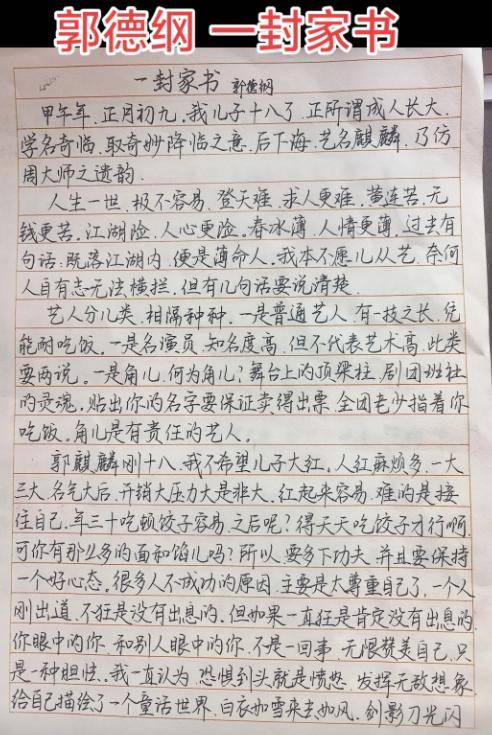 郭德纲 一封家书
一封家书 郭德纲
甲午年,正月初九,我儿子十八了,正所谓成人长大,
学名奇临,取奇妙降临之意,后下海,艺名麒麟,乃仿
周大师之遗韵.
人生一世,极不容易,登天难,求人更难,黄连苦,无
钱更苦,江湖险,人心更险,春冰薄,人情更薄,过去有
句话:既落江湖内,便是薄命人,我本不愿儿从艺,奈何
人自有志无法横拦,但有几句话要说清楚.
艺人分几类,相隔种种,一是普通艺人,有一技之长,凭
能耐吃饭。一是名演员,知名度高,但不代表艺术高,此类
要两说。一是角儿,何为角儿?舞台上的顶梁柱,剧团班社
的灵魂,贴出你的名字要保证卖得出票,全团老少指着你
吃饭。角儿是有责任的艺人。
郭麒麟刚十八,我不希望儿子大红。人红麻烦多,一大
三大,名气大后,开销大压力大是非大,红起来容易,难的是接
住自己,年三十吃顿饺子容易,之后呢?得天天吃饺子才行啊,
可你有那么多的面和馅儿吗?所以,要多下功夫,并且要保持
一个好心态。很多人不成功的原因,主要是太尊重自己了,一个人
刚出道,不狂是没有出息的,但如果一直狂是肯定没有出息的,
你眼中的你,和别人眼中的你,不是一回事,无限赞美自己,只
是一种胆怯,我一直认为,恐惧到头就是愤怒,发挥无敌想象
给自己描绘了一个童话世界,白衣如雪来去如风,剑影刀光闪